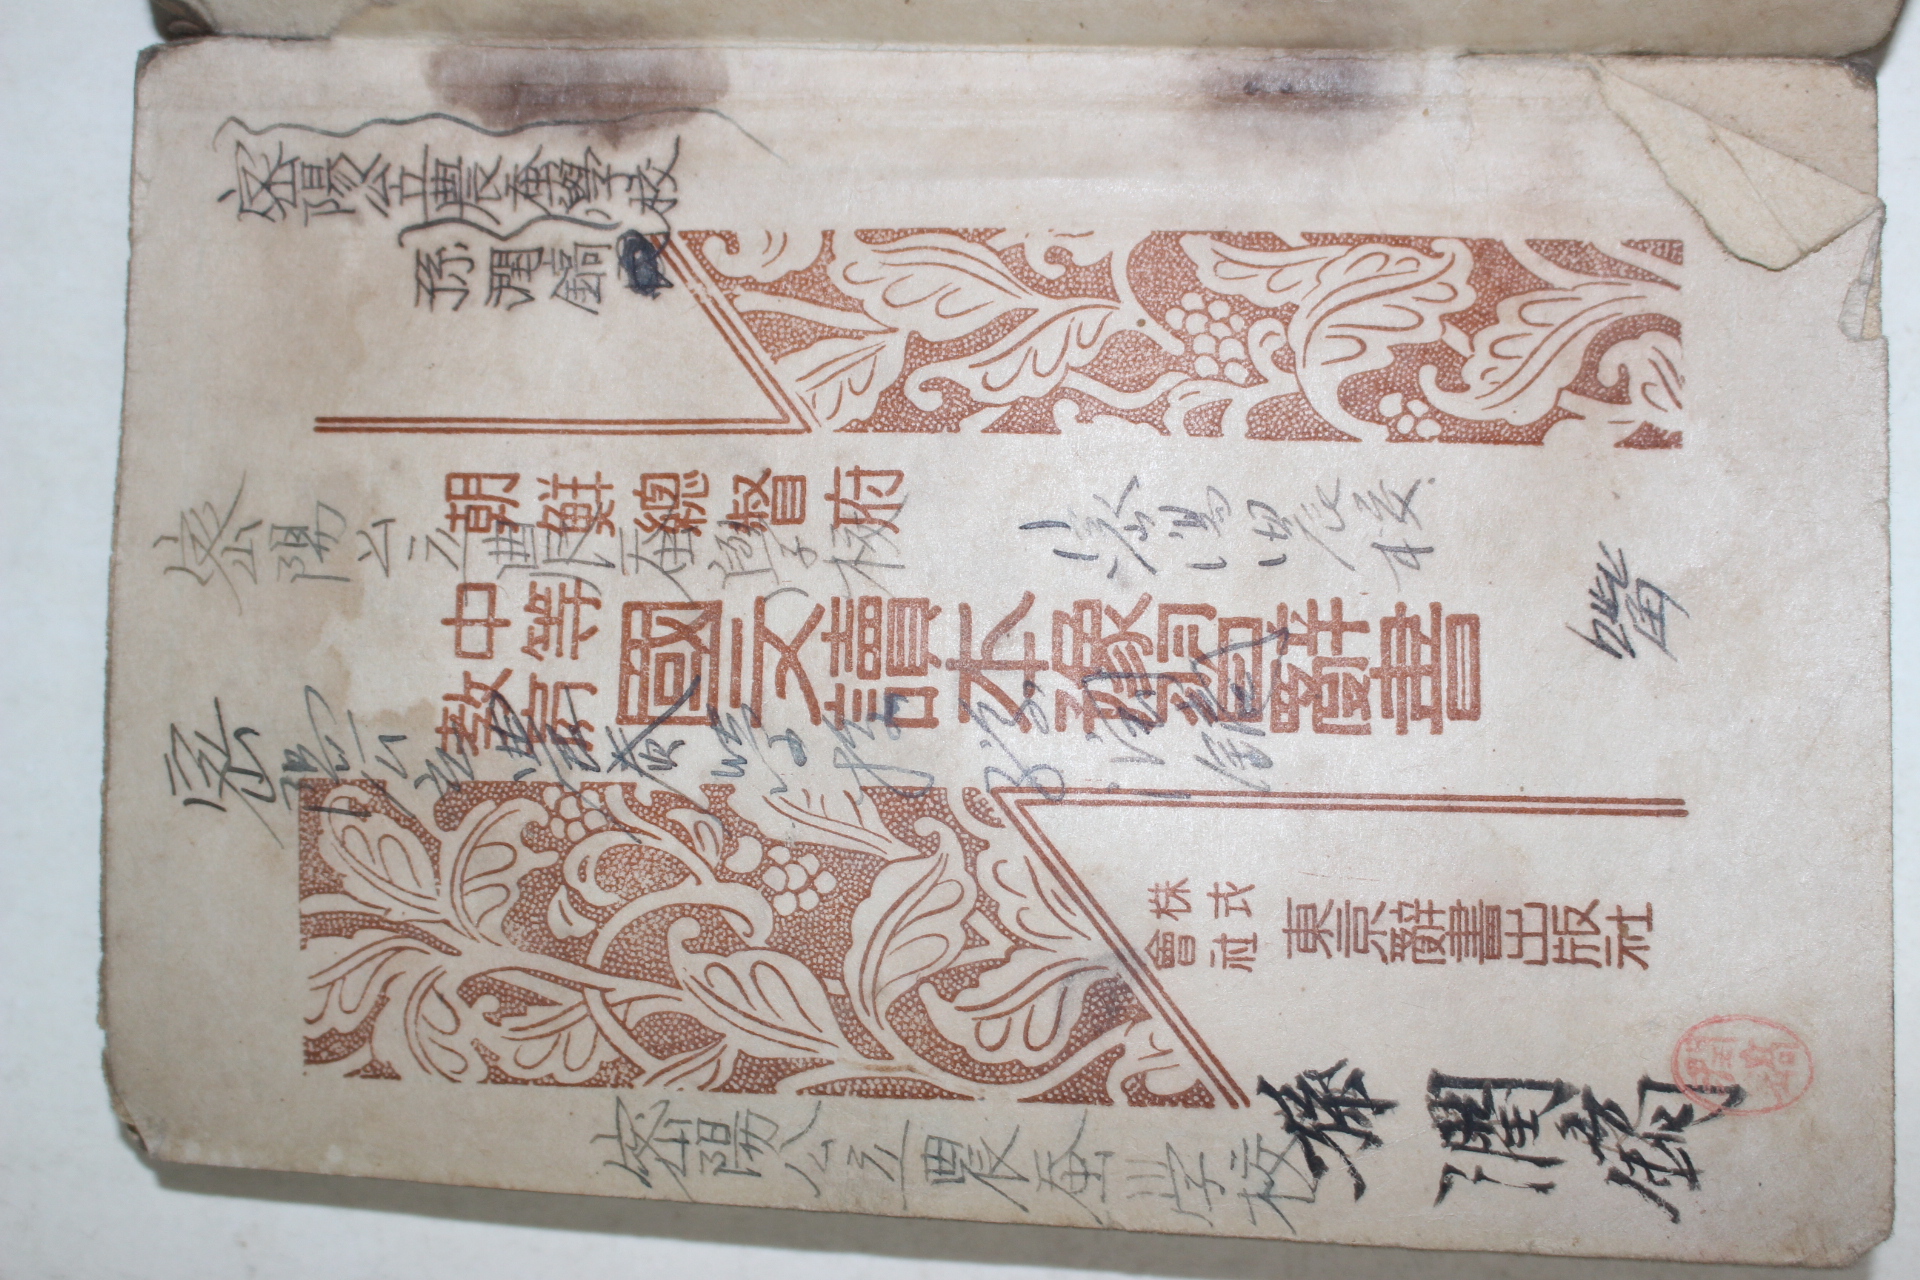 密陽公立農蚕學校
孫潤鎬
朝鮮總督府
密陽公立農蚕學校
密陽農校
中等
教育
國文讀本豫習辭書
密陽公立農蚕学校 孫潤鎬
株式
會社
東京辭書出版社
密陽公立農蚕学校
孫潤鎬
潤鎬